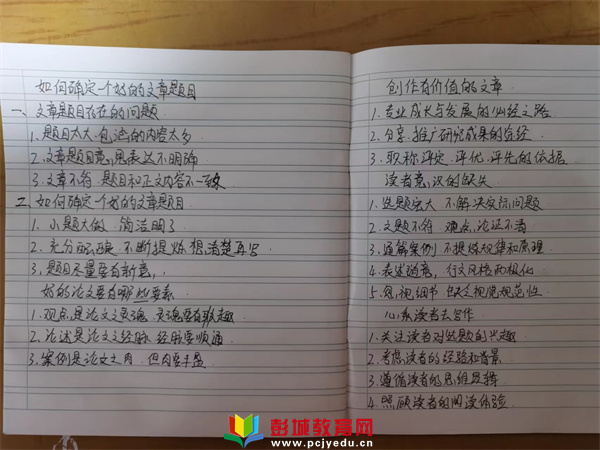 如何确定一个好的文章题目
一、文章题目存在的问题
1.题目太大,包涵的内容太多
2.文章题目意思表达不明确
3.文章不符,题目和正文内容不一致
二、如何确定一个好的文章题目
1.小题大做 简洁明了
2.充分酝酿 不断提炼 想清楚再写
3.题目尽量要有新意
好的论文要有哪些要素
1.观点是论文灵魂 灵魂要有
2.论述是论文经脉 经脉要顺通
3.案例是论文之肉 但肉要丰盈
创作有价值的文章
1.专业成长与发展的必经之路
2.分享、推广研究成果的途径
3.职称评定、评优、评先的依据
读者意识的缺失
1.选题宏大 不解决实际问题
2.文题不符 观点、论证不清
3.通篇案例 不提炼规律和原理
4.表述随意 行文风格两极化
5.忽视细节 缺乏规范性
心系读者去写作
1.关注读者对选题的兴趣
2.考虑读者的经验和背景
3.遵循读者的思维逻辑
4.照顾读者的阅读体验
彭城教育网
www.pcjyedu.cn